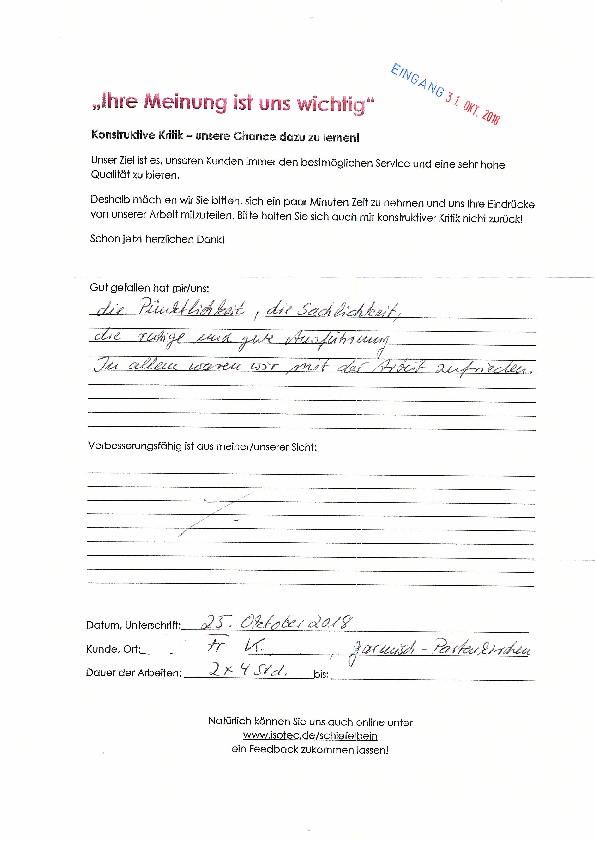 EINGANG 31 OKT. 2018
„Ihre Meinung ist uns wichtig“
Konstruktive Kritik – unsere Chance dazu zu lernen!
Unser Ziel ist es, unseren Kunden immer den bestmöglichen Service und eine sehr hohe
Qualität zu bieten.
Deshalb möchten wir Sie bitten, sich ein paar Minuten Zeit zu nehmen und uns Ihre Eindrücke
von unserer Arbeit mitzuteilen. Bitte halten Sie sich auch mit konstruktiver Kritik nicht zurück!
Schon jetzt herzlichen Dank!
Gut gefallen hat mir/uns:
die Pünktlichkeit, die Sachlichkeit,
die ruhige und gute Ausführung
In allem waren wir mit der Arbeit zufrieden.
Verbesserungsfähig ist aus meiner/unserer Sicht:
Datum, Unterschrift: 25. Oktober 2018
Kunde, Ort: Fr K. , Garmisch - Partenkirchen
Dauer der Arbeiten: 2 x 4 Std. bis:
Natürlich können Sie uns auch online unter
www.isotec.de/schiefelbein
ein Feedback zukommen lassen!